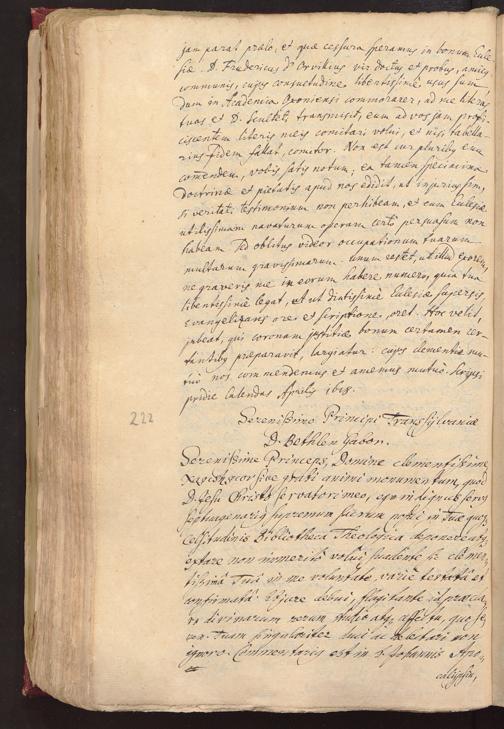 jam parat prælo, et quæ cessura speramus in bonum Eccle-
siæ. D. Fredericus Dorvilius vir doctus et probus, amicus
communis, cujus consuetudine libentissimè usus sum
dum in Academia commorarer, ad me literas
tuas et D. Sculteti transmisit, eum ad vos jam profi-
ciscentem literis meis comitari volui, et nisi tabella-
rius fidem fallat, comitor. Non est cur pluribus eum
comendem, vobis satis notum; ea tamen specimina
doctrinæ et pietatis apud nos edidit, ut injurius sim,
si veritati testimonium non perhibeam, et eum Ecclesiæ
utilissimam navaturum operam certò persuasum non
habeam. Sed oblitus videor occupationum tuarum
multarum gravissimarum. unum restet, ut illud exorem,
ne graveris me in eorum habere numero, qui a tua
libentissimè legat, et ut diutissimè Ecclesiæ supersis,
Evangelizans ore et scriptione, oret. Hoc velit,
jubeat, qui coronam justitiæ bonum certamen cer-
tantibus præparavit, largiatur: cujus clementiæ mu-
tuò nos commendemus et amemus mutuò. Scripsi
pridie Calendas Aprilis 1618.
222
Serenissimo Principi Transsylvaniæ
D. Bethlen Gabor.
Serenissime Princeps, Domine clementissime,
sive grati animi monumentum, quod
D. Jesu Christo servatori meo, ejus indignus servus
septuagenarius supremum in Tuæ quoque
Celsitudinis Bibliotheca Theologica deponere atque
extare non immeritò volui, suadente clemen-
tissimâ Tuâ in me voluntate, variè testatâ et
confirmatâ. Et jure debui, flagitante id præcla-
ro divinarum rerum studio atque affectu, quo Se-
ren. Tuam singulariter duci ac delectari non
ignoro. Commentarius est in S. Johannis Apo-
calypsin,